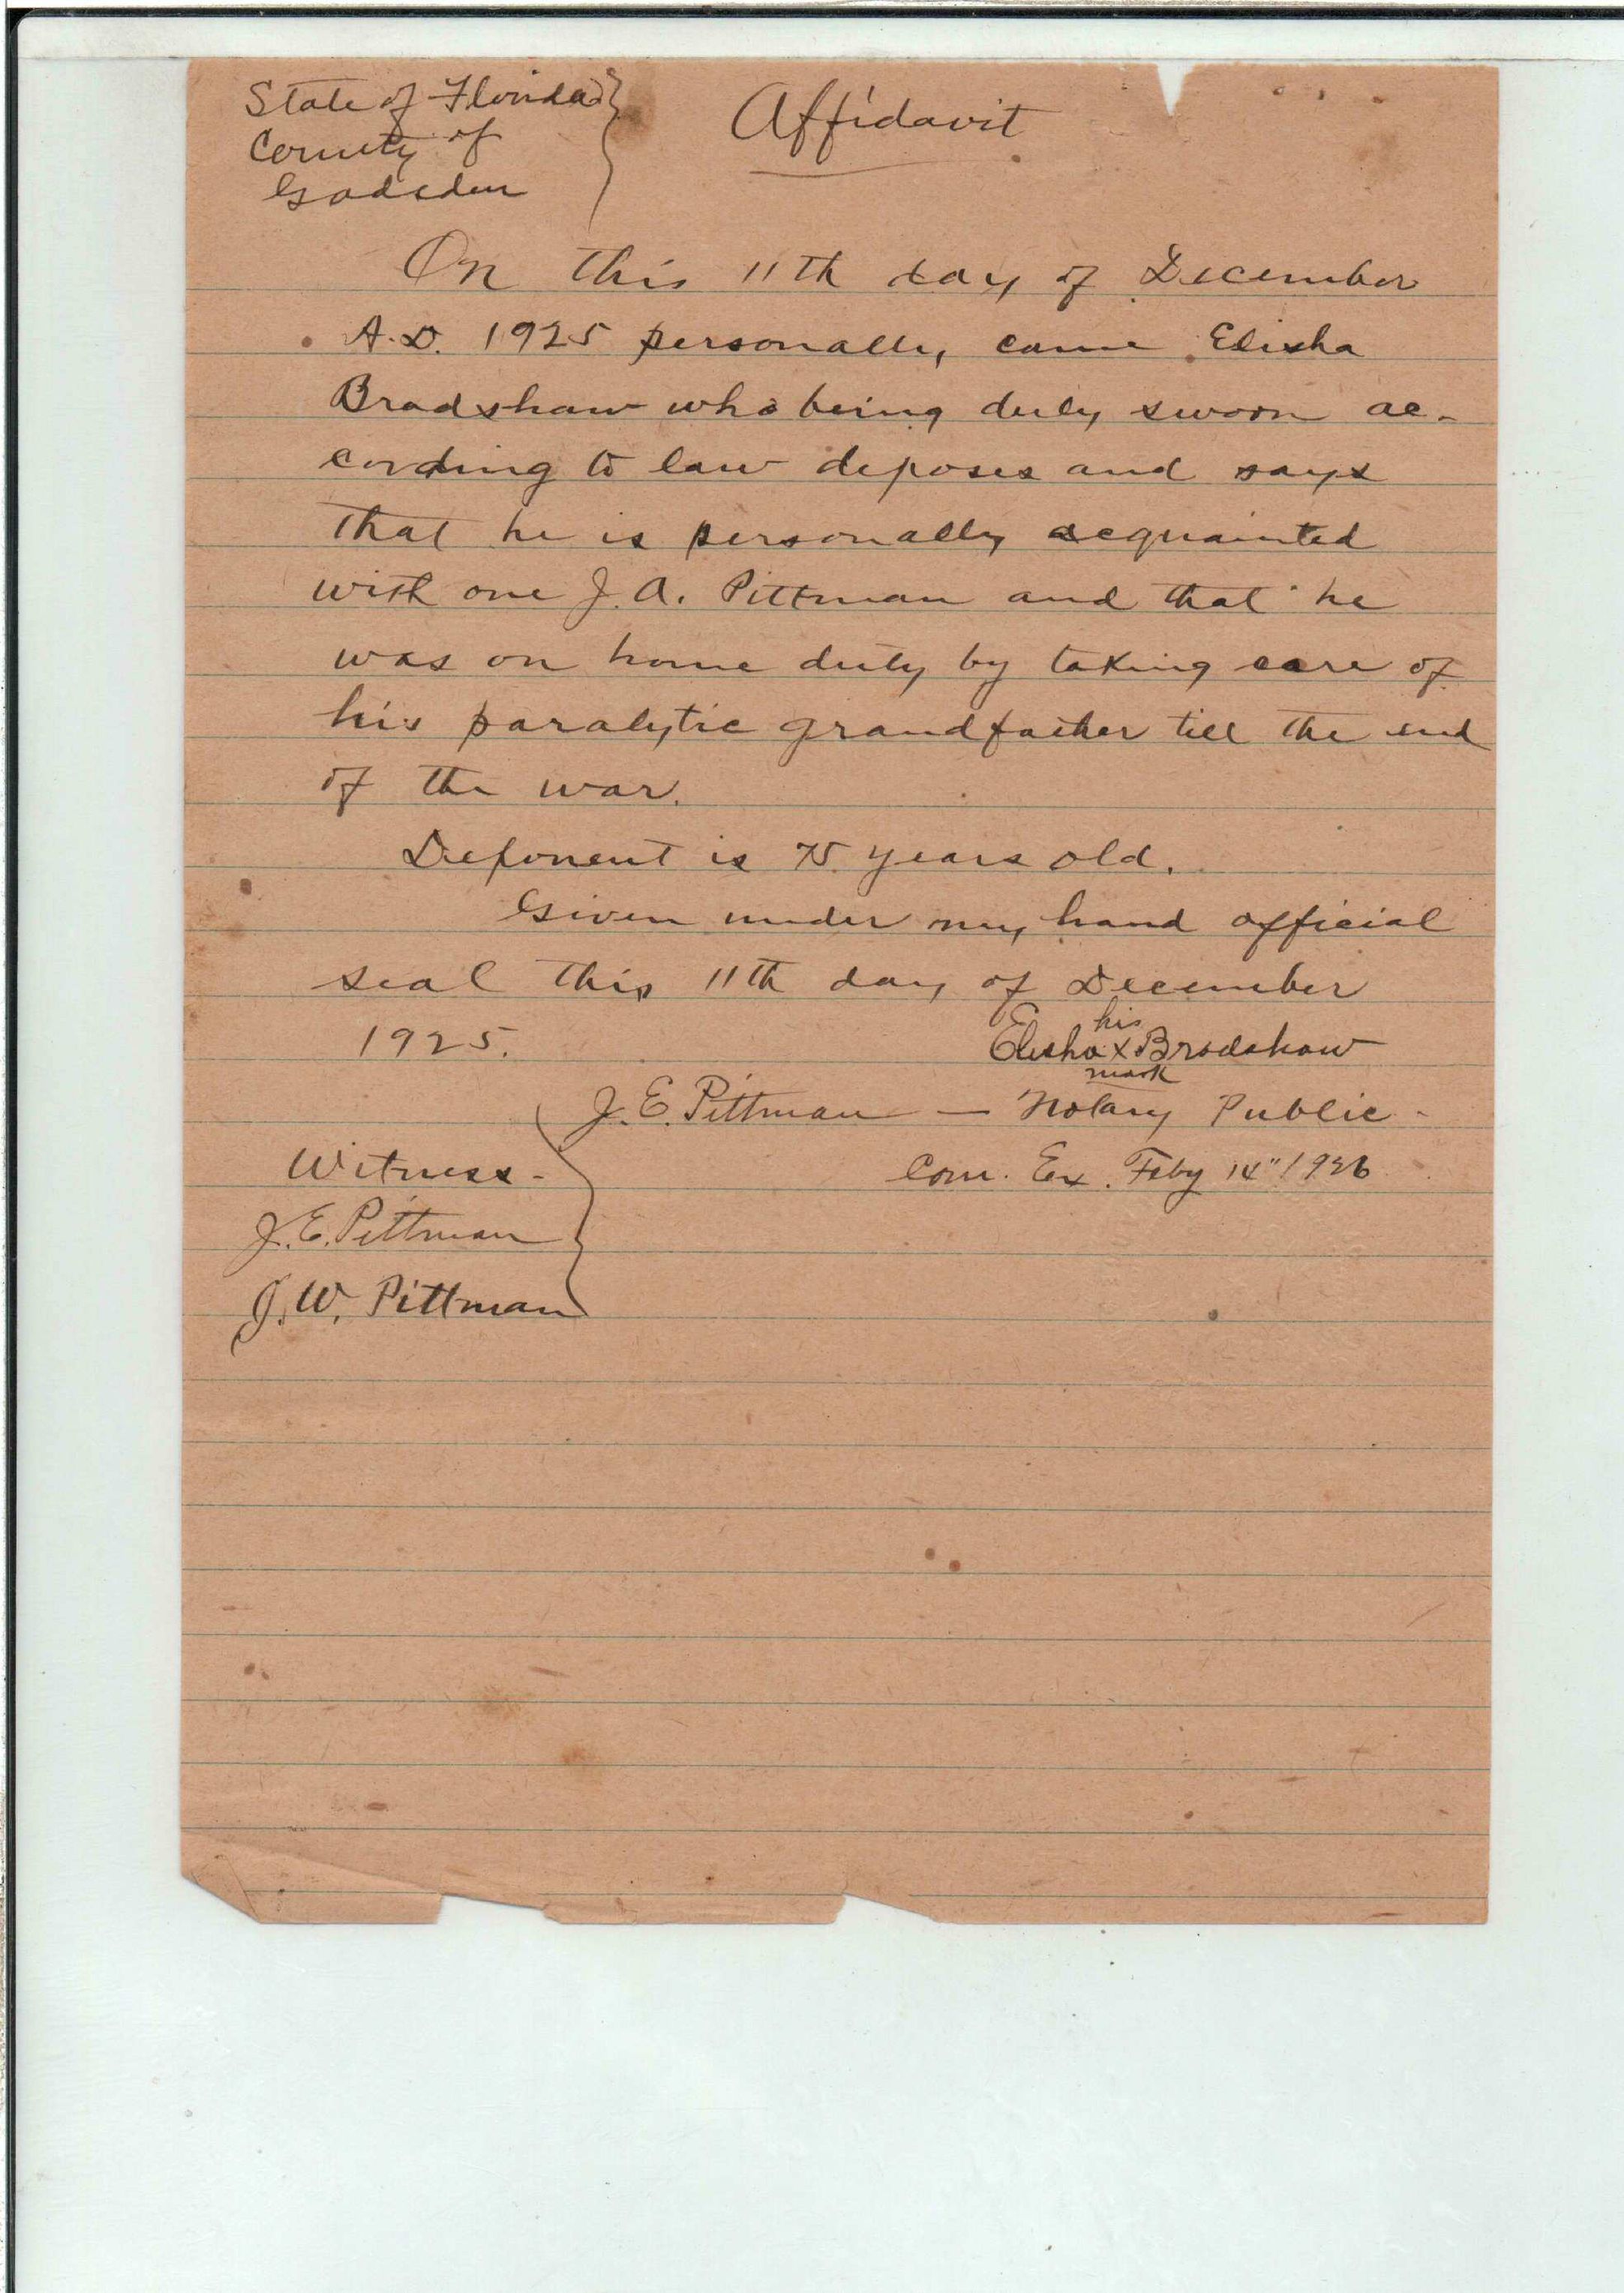 State of Florida }
County of
Gadsden
Affidavit
On this 11th day of December
A.D. 1925 personally came Elisha
Bradshaw who being duly sworn ac-
cording to law deposes and says
that he is personally acquainted
with one J. A. Pittman and that he
was on home duty by taking care of
his paralytic grandfather till the end
of the war.
Deponent is 75 years old.
Given under my hand official
seal this 11th day of December
1925.
his
Elisha X Bradshaw
mark
J. E. Pittman — Notary Public -
Com. Ex. Feby 14" 1926
Witness -
J. E. Pittman
J. W. Pittman